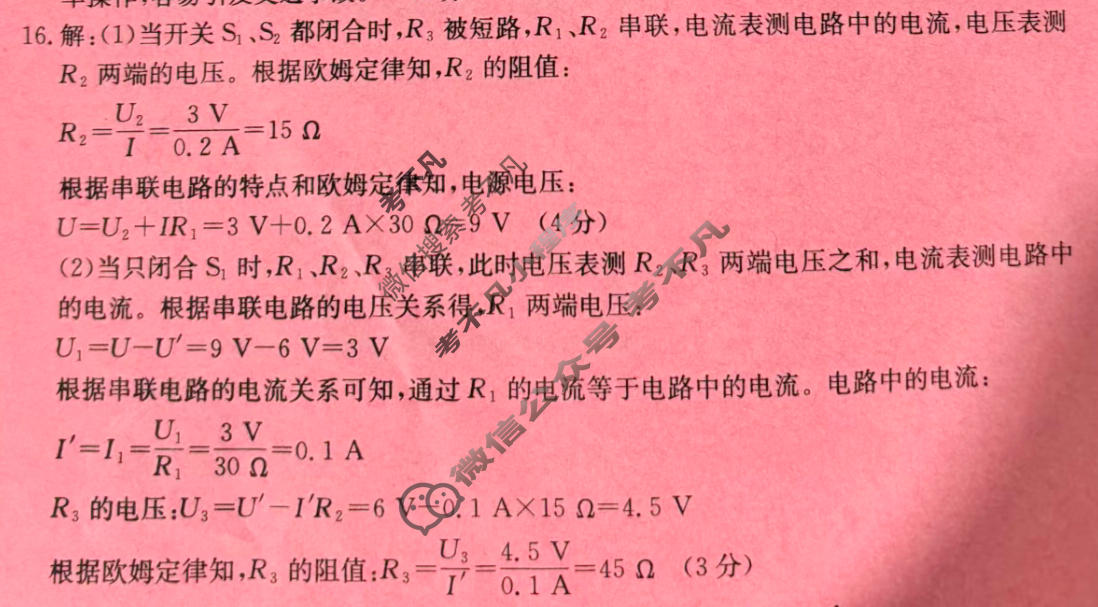 16. 解:(1)当开关 S₁、S₂ 都闭合时,R₃ 被短路,R₁、R₂ 串联,电流表测电路中的电流,电压表测
R₂ 两端的电压。根据欧姆定律知,R₂ 的阻值:
R₂=U₂/I=3 V/0.2 A=15 Ω
根据串联电路的特点和欧姆定律知,电源电压:
U=U₂+IR₁=3 V+0.2 A×30 Ω=9 V (4分)
(2)当只闭合 S₁ 时,R₁、R₂、R₃ 串联,此时电压表测 R₂、R₃ 两端电压之和,电流表测电路中
的电流。根据串联电路的电压关系得,R₁ 两端电压:
U₁=U-U′=9 V-6 V=3 V
根据串联电路的电流关系可知,通过 R₁ 的电流等于电路中的电流。电路中的电流:
I′=I₁=U₁/R₁=3 V/30 Ω=0.1 A
R₃ 的电压:U₃=U′-I′R₂=6 V-0.1 A×15 Ω=4.5 V
根据欧姆定律知,R₃ 的阻值:R₃=U₃/I′=4.5 V/0.1 A=45 Ω (3分)
考不凡
微信搜索考不凡
考不凡小程序
微信公众号 考不凡